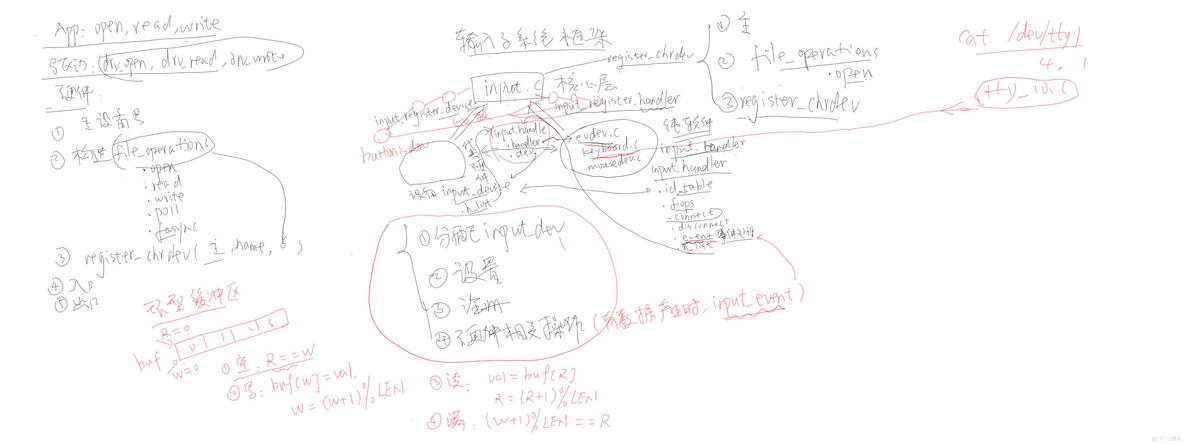 App: open, read, write
驱动: drv_open, drv_read, drv_write
硬件:
① 主设备号
② 构造 file_operations
.open
.read
.write
.poll
.fasync
③ register_chrdev( 主, name, )
④ 入口
⑤ 出口
环型缓冲区
R=0
buf
0 1
W=0
① 空: R==W
② 写: buf[W]=val
W=(W+1)%LEN
③ 读: val=buf[R]
R=(R+1)%LEN
④ 满: (W+1)%LEN==R
输入子系统框架
input.c 核心层
register_chrdev
input_register_device
input_register_handler
buttons_dev
input_handle
.handler
.dev
evdev.c
keyboard.c
mousedev.c
纯软件
input_handler
input_handler
.id_table
.fops
.connect
.disconnect
.event 事件处理
.h_list
硬件
设备 input_device
.h_list
① 分配 input_dev
② 设置
③ 注册
④ 硬件相关操作 (有数据产生时, input_event)
① 主
② file_operations
.open
③ register_chrdev
cat /dev/tty1
4, 1
tty_io.c